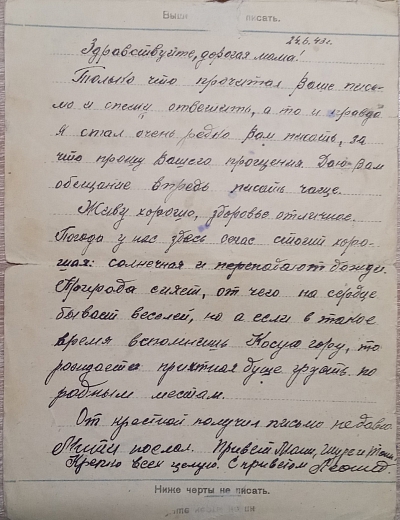 Выше писать.
24.6.43г.
Здравствуйте, дорогая мама!
Только что прочитал Ваше пись-
мо и спешу ответить, а то и правда
я стал очень редко Вам писать, за
что прошу Вашего прощения. Даю Вам
обещание впредь писать чаще.
Живу хорошо, здоровье отличное.
Погода у нас здесь сейчас стоит хоро-
шая: солнечная и перепадают дожди.
Природа сияет, от чего на сердце
бывает веселей, но а если в такое
время вспомнишь Косую гору, то
рождается приятная грусть по
родным местам.
От крестной получил письмо недавно
Мити послал. Привет Мани, Шуре и Тони.
Крепко всех целую. С приветом Леонид.
Ниже черты не писать.